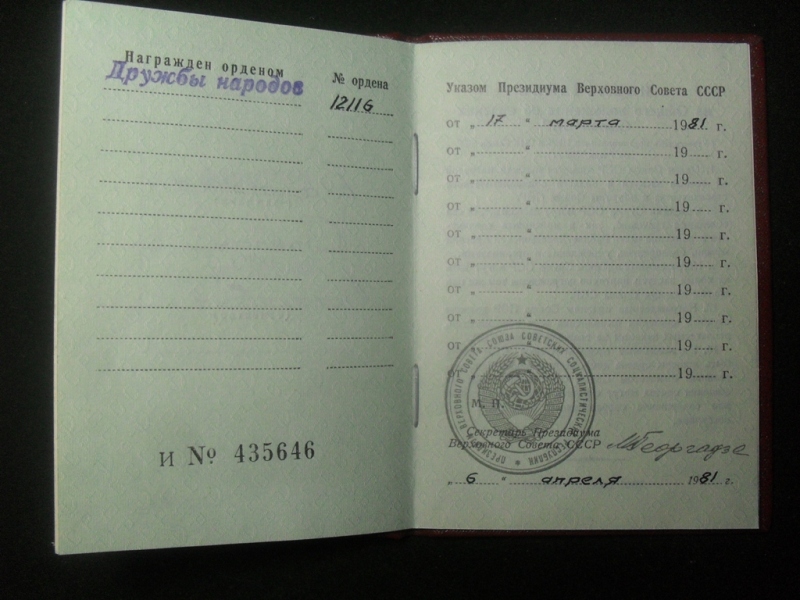 Награжден орденом
Дружбы народов
№ ордена
12116
И № 435646
Указом Президиума Верховного Совета СССР
от „ 17 “ марта 1981 г.
от „ “ 19 г.
от „ “ 19 г.
от „ “ 19 г.
от „ “ 19 г.
от „ “ 19 г.
от „ “ 19 г.
от „ “ 19 г.
от „ “ 19 г.
от „ “ 19 г.
ПРЕЗИДИУМ ВЕРХОВНОГО СОВЕТА СОЮЗА СОВЕТСКИХ СОЦИАЛИСТИЧЕСКИХ РЕСПУБЛИК
М. П.
Секретарь Президиума
Верховного Совета СССР
МГеоргадзе
„ 6 “ апреля 1981 г.